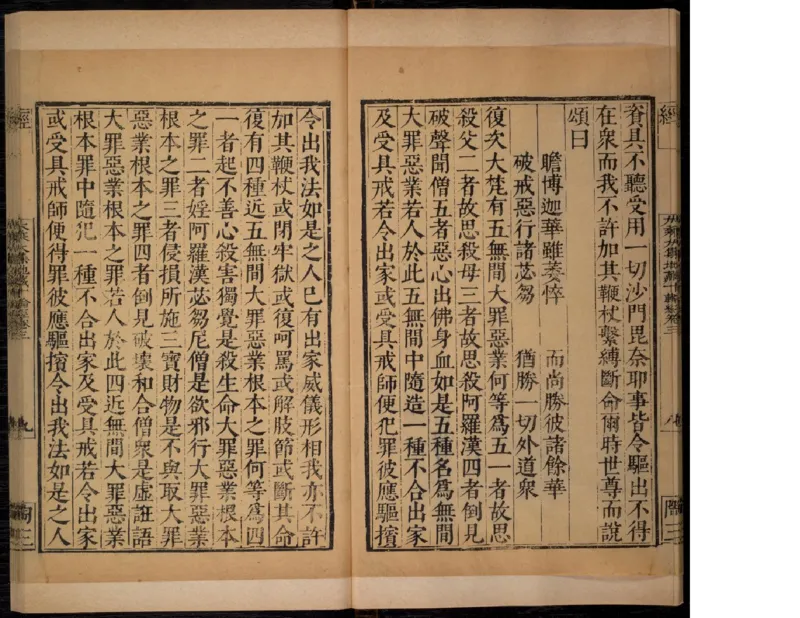 資具不聽受用一切沙門毘奈耶事皆令驅出不得
在衆而我不許加其鞭杖繫縛斷命爾時世尊而說
頌曰
瞻博迦華雖萎悴 而尚勝彼諸餘華
破戒惡行諸苾芻 猶勝一切外道衆
復次大梵有五無間大罪惡業何等爲五一者故思
殺父二者故思殺母三者故思殺阿羅漢四者倒見
破聲聞僧五者惡心出佛身血如是五種名爲無間
大罪惡業若人於此五無間中隨造一種不合出家
及受具戒若令出家或受具戒師便犯罪彼應驅擯
令出我法如是之人已有出家威儀形相我亦不許
加其鞭杖或閉牢獄或復呵罵或解肢節或斷其命
復有四種近五無間大罪惡業根本之罪何等爲四
一者起不善心殺害獨覺是殺生命大罪惡業根本
之罪二者婬阿羅漢苾芻尼僧是欲邪行大罪惡業
根本之罪三者侵損所施三寶財物是不與取大罪
惡業根本之罪四者倒見破壞和合僧衆是虛誑語
大罪惡業根本之罪若人於此四近無間大罪惡業
根本罪中隨犯一種不合出家及受具戒若令出家
或受具戒師便得罪彼應驅擯令出我法如是之人
經